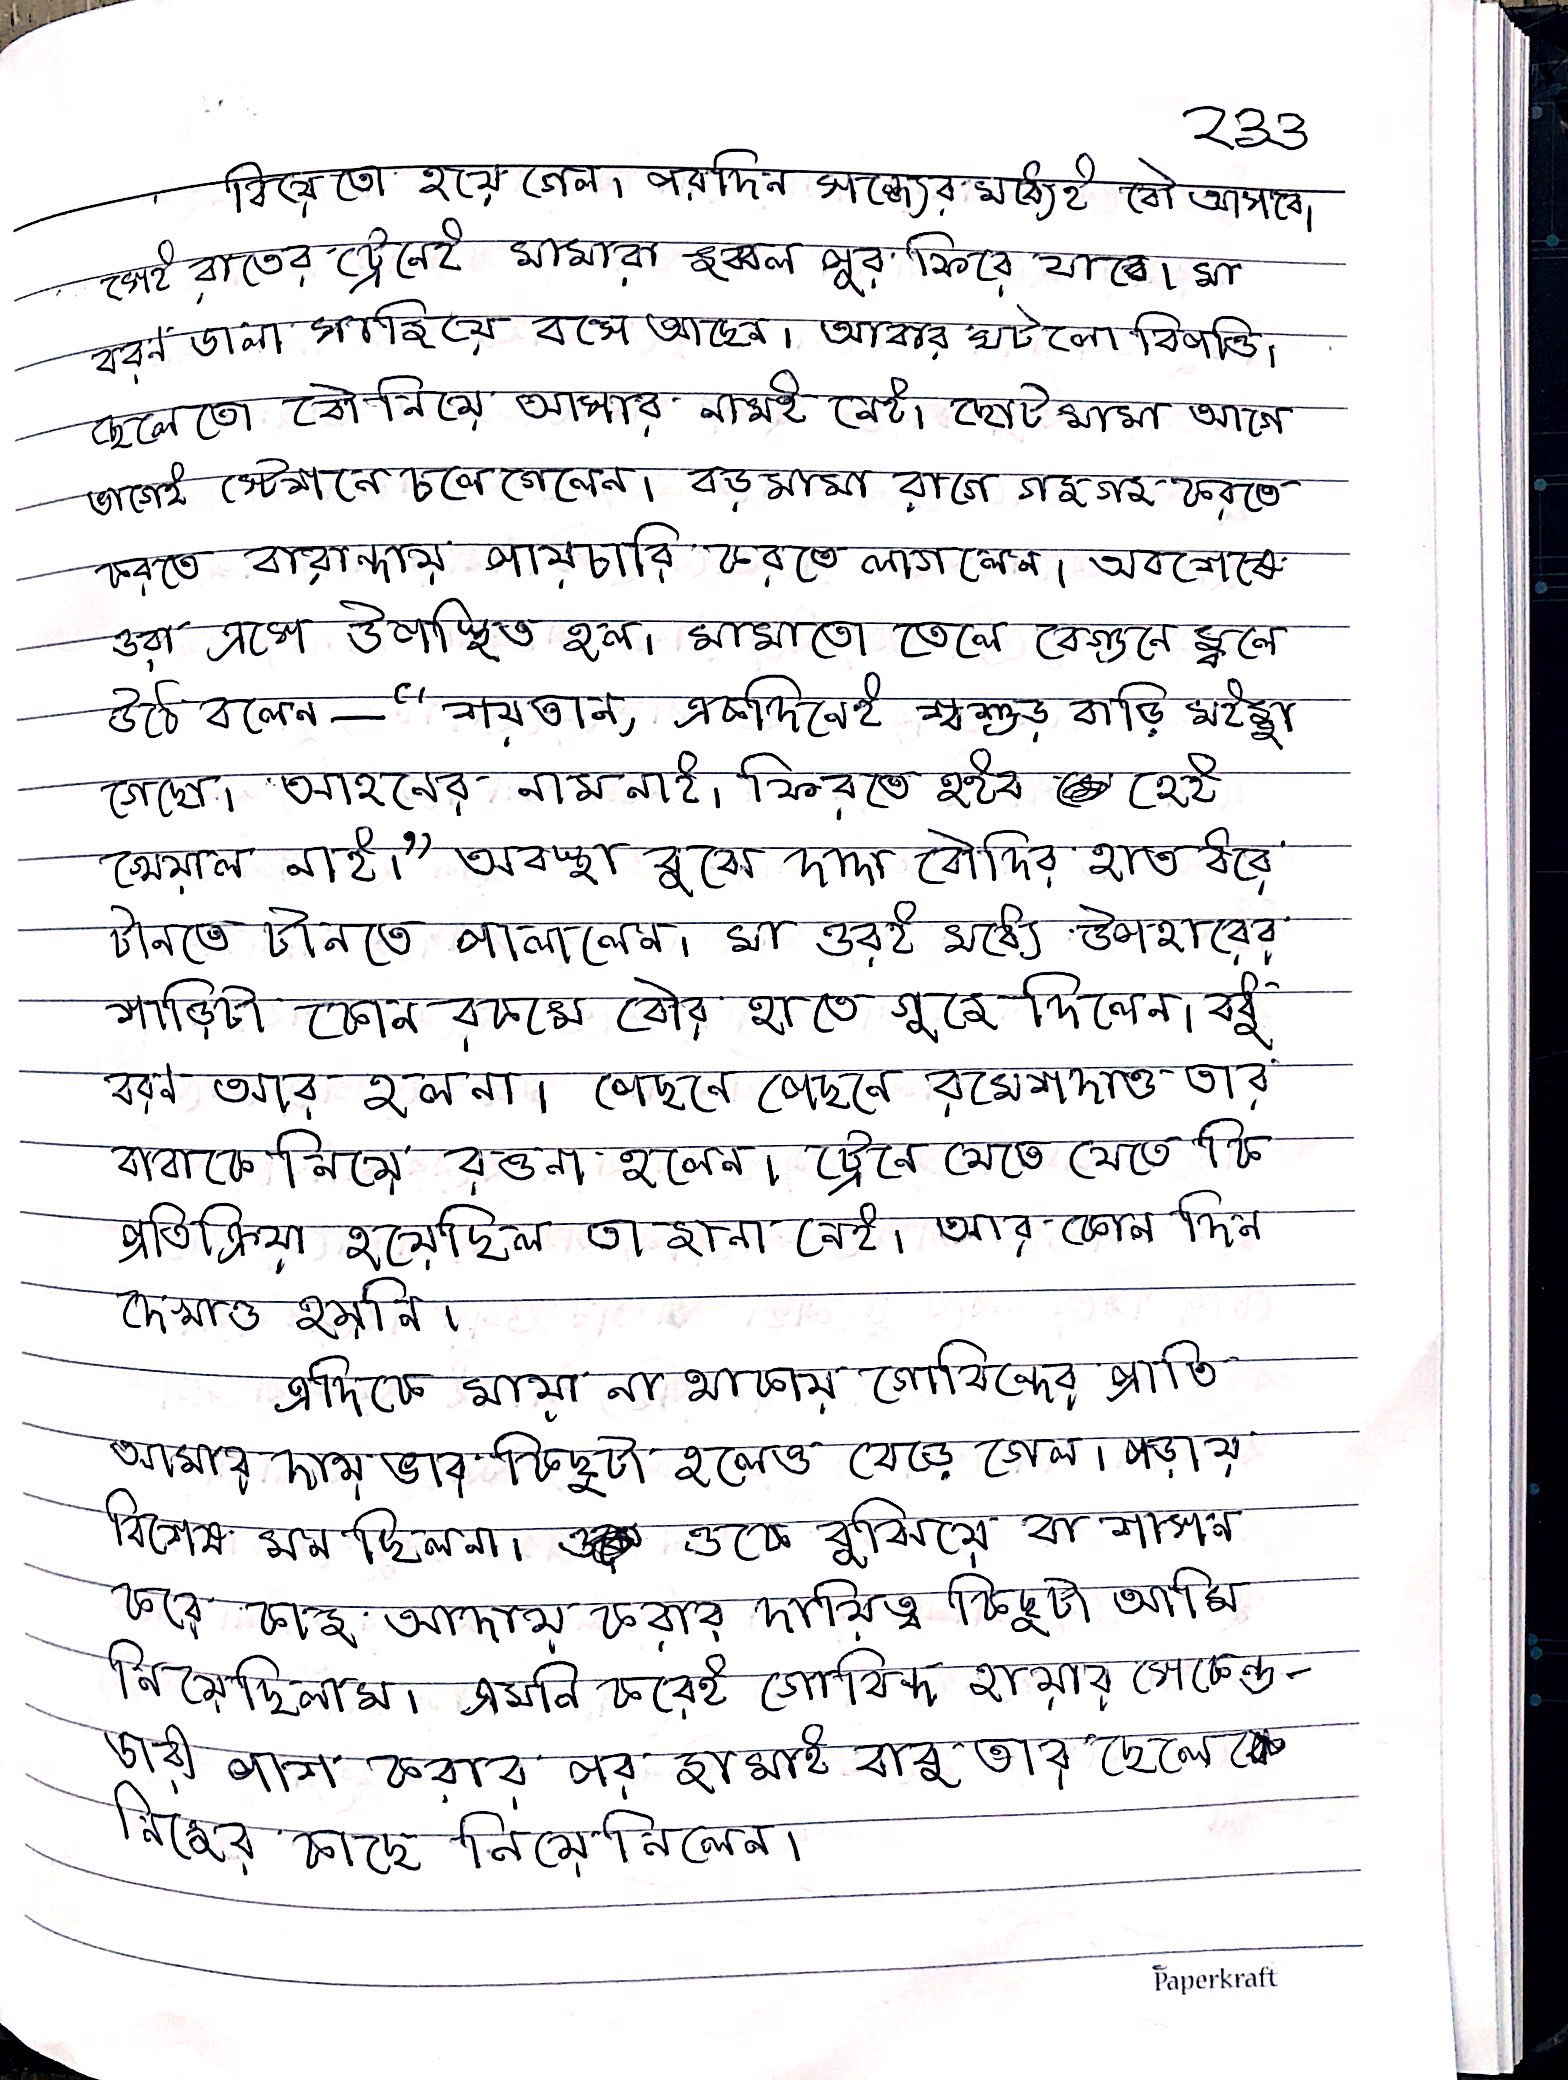 ২৩৩
বিয়েতো হয়ে গেল। পরদিন সন্ধ্যের মধ্যেই বৌ আসবে।
সেই রাতের ট্রেনেই মামারা জব্বল পুর ফিরে যাবে। মা
বরণ ডালা সাজিয়ে বসে আছেন। আবার ঘটলো বিপত্তি।
ছেলে তো বৌ নিয়ে আসার নামই নেই। ছোট মামা আগে
ভাগেই স্টেশানে চলে গেলেন। বড়মামা রাগে গজগজ করতে
করতে বারান্দায় পায়চারি করতে লাগলেন। অবশেষে
ওরা এসে উপস্থিত হল। মামাতো তেলে বেগুনে জ্বলে
উঠে বলেন — “শয়তান, একদিনেই শ্বশুড় বাড়ি মইজ্জা
গেছো। আহনের নাম নাই। ফিরতে হইব হেই
খেয়াল নাই।” অবস্থা বুঝে দাদা বৌদির হাত ধরে
টানতে টানতে পালালেন। মা ওরই মধ্যে উপহারের
শাড়িটা কোন রকমে বৌর হাতে গুজে দিলেন। বধু
বরণ আর হলনা। পেছনে পেছনে রমেশদাও তার
বাবাকে নিয়ে রওনা হলেন। ট্রেনে যেতে যেতে কি
প্রতিক্রিয়া হয়েছিল তা জানা নেই। আর কোন দিন
দেখাও হয়নি।
এদিকে মায়া না থাকায় গোবিন্দের প্রতি
আমার দায় ভার কিছুটা হলেও বেড়ে গেল। পড়ায়
বিশেষ মন ছিলনা। ওকে বুঝিয়ে বা শাসন
করে কাজ আদায় করার দায়িত্ব কিছুটা আমি
নিয়েছিলাম। এমনি করেই গোবিন্দ হায়ার সেকেন্ড-
ডারী পাশ করার পর জামাই বাবু তার ছেলেকে
নিজের কাছে নিয়ে নিলেন।
Paperkraft